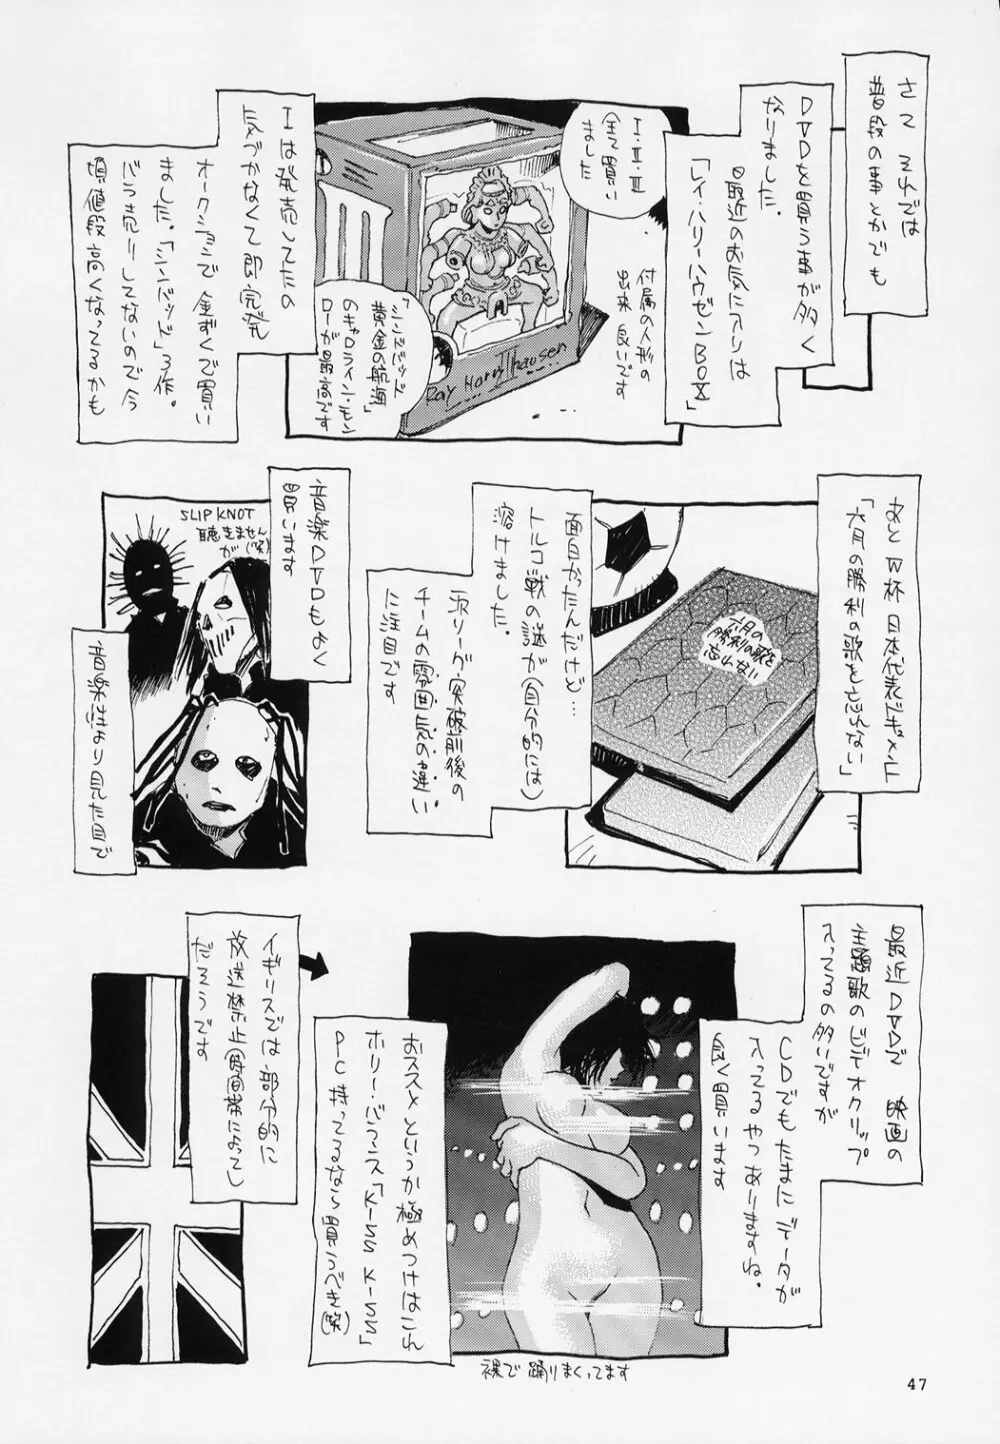 さて それでは
普段の事とかでも
DVDを買う事が多く
なりました.
最近のお気に入りは
「レイ・ハリーハウゼンBOX」
I・II・III
全て買い
ました
付属の人形の
出来 良いです
Ray Harryhausen
II
「シンドバッド
黄金の航海」
のキャロライン・モン
ローが最高です
Iは発売してたの
気づかなくて即完売
オークションで金ずくで買い
ました.「シンバッド」3作。
バラ売りしてないので今
頃値段高くなってるかも
あとW杯日本代表ドキュメント
「六月の勝利の歌を忘れない」
六月の
勝利の歌を
忘れない
面白かったんだけど…
トルコ戦の謎が(自分的には)
溶けました.
予選リーグ突破前後の
チームの雰囲気の違い.
に注目です
音楽DVDもよく
買います
SLIP KNOT
聴きません
が(笑)
音楽性より見た目で
最近DVDで 映画の
主題歌のビデオクリップ
入ってるの多いですが
CDでもたまにデータが
入ってるやつありますね.
良く買います
おススメというか極めつけはこれ
ホリー・バランス「KISS KISS」
PC持ってるなら買うべき(笑)
裸で踊りまくってます
イギリスでは部分的に
放送禁止(時間帯によって)
だそうです
47